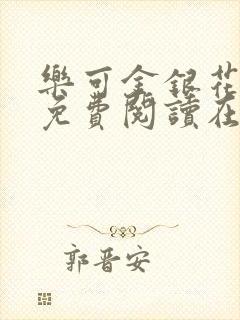 樂可金銀花
免費閱讀在
郭晋安